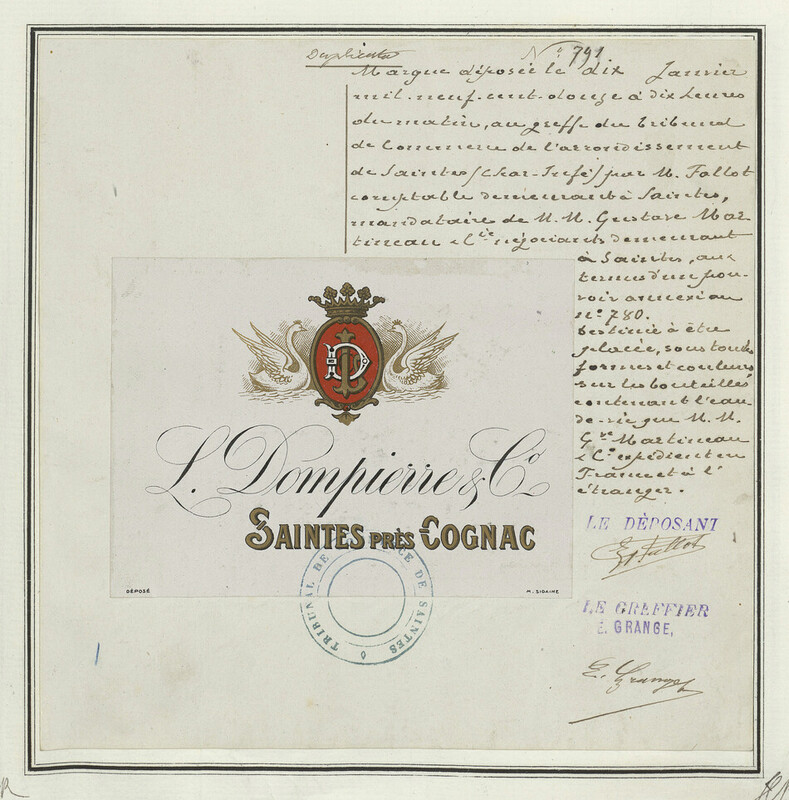 Duplicata
N° 791
Marque déposée le dix Janvier
mil-neuf-cent-douze à dix heures
du matin, au greffe du Tribunal
de Commerce de l'arrondissement
de Saintes (Char-Infé) par M. Fallot
comptable demeurant à Saintes,
mandataire de M.M. Gustave Mar
tineau & Cie négociants demeurant
à Saintes, aux
termes d'un pou-
voir annexé au
n° 780.
Destinée à être
placée, sous toutes
formes et couleurs
sur les bouteilles
contenant l'eau-
de-vie que M.M.
Gve Martineau
& Co expédient en
France et à l'
étranger.
L. Dompierre & Co
SAINTES PRÈS COGNAC
DÉPOSÉ
M. SIDAINE
TRIBUNAL DE COMMERCE DE SAINTES
LE DÉPOSANT
Fallot
LE GREFFIER
E. GRANGE,
E. Grange